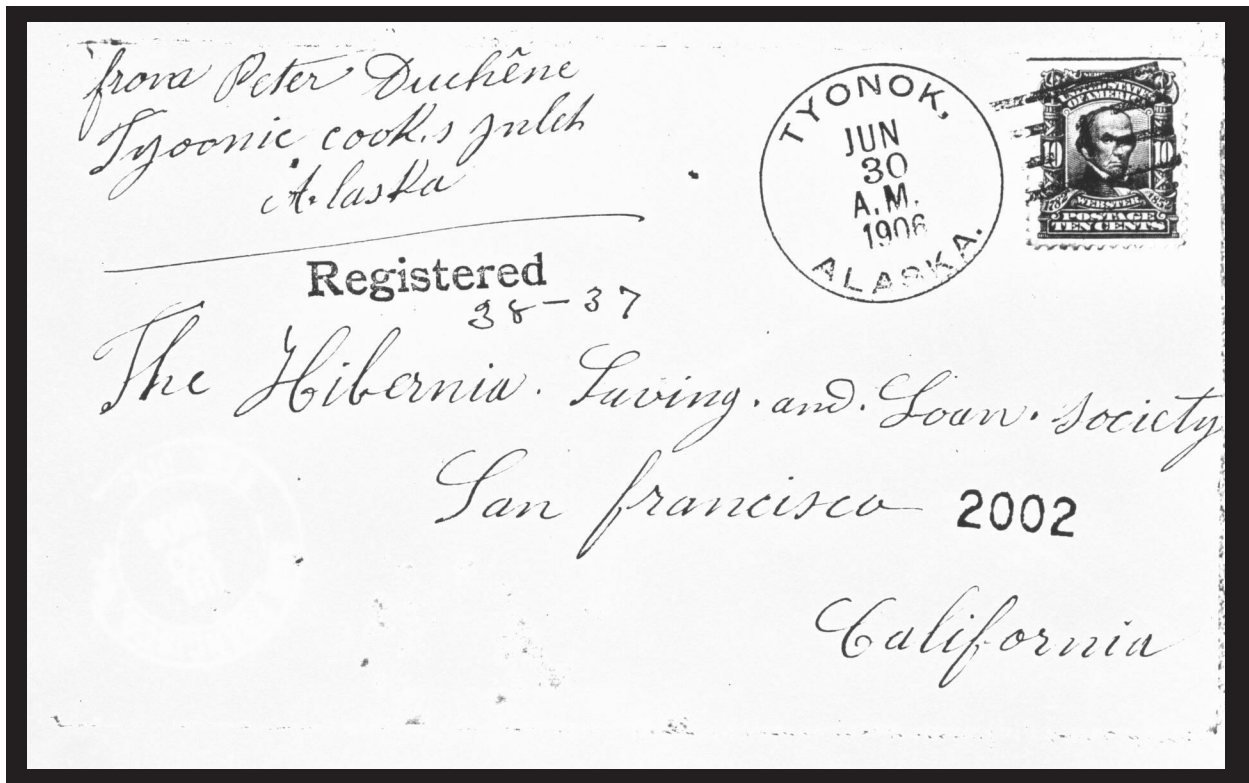 from Peter Duchêne
Tyoonic cook,s Inlet
Alaska
TYONOK,
JUN
30
A.M.
1906
ALASKA.
UNITED STATES
OF AMERICA
10 10
WEBSTER
POSTAGE
TEN CENTS
Registered
38-37
The Hibernia. Saving. and. Loan. society
San francisco 2002
California